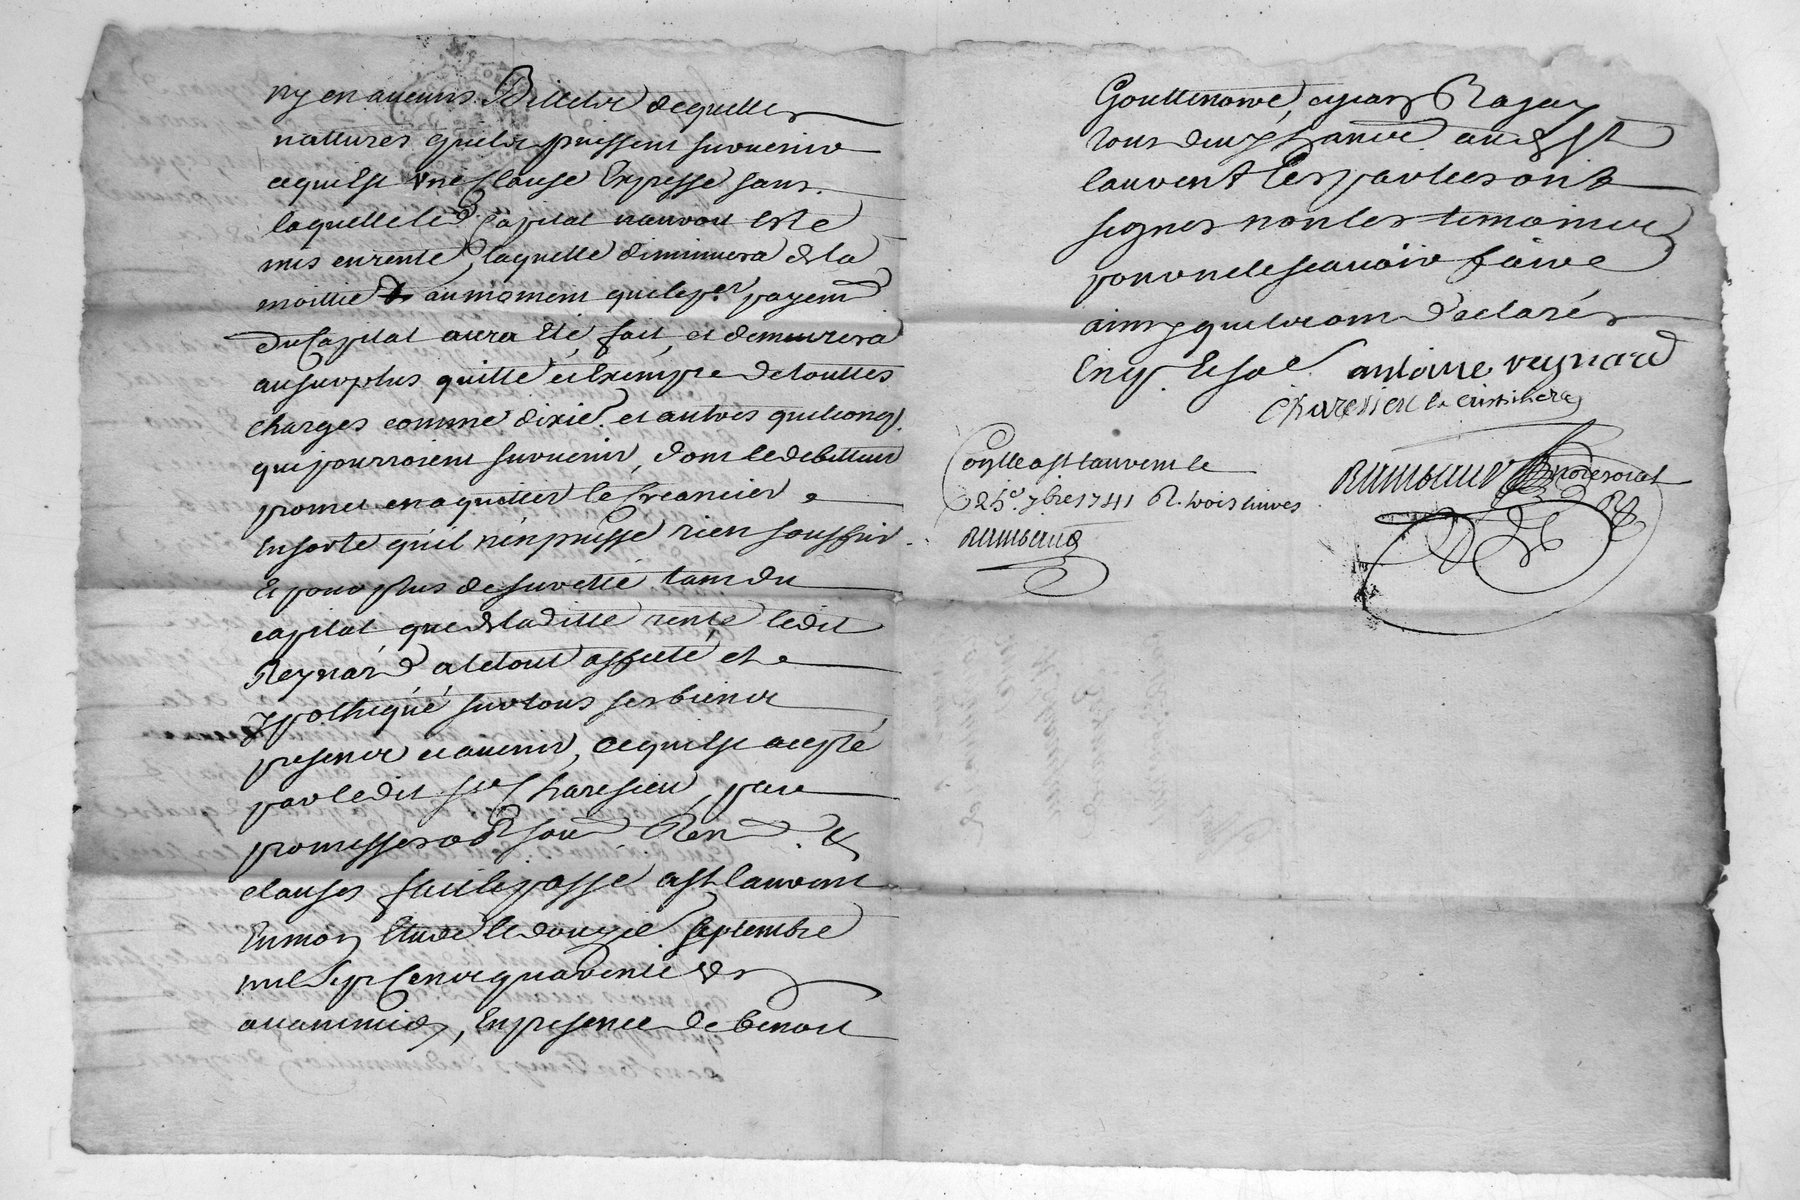 ny en aucuns Billets de quelles
nattures quils puissent survenir
ce qui Est une Clause Expresse sans
laquelle led. Capital nauroit Esté
mis en rente, laquelle diminuera de la
moittié au moment que le p.er payem.t
du Capital aura Eté fait, et demeurera
au surplus quitte et Exempte de touttes
charges comme dixie. et autres quelconq.
qui pourroient survenir, dont le debitteur
promet en aquitter le Creancier
En sorte qu'il n'en puisse rien souffrir.
Et pour plus de suretté tant du
capital que de la ditte rente ledit
Reynard a le tout affecté et
ypothequé sur tous ses biens
presents et avenir, ce qui Est acepté
par ledit sr Charesieu, par
promesses obl. soum. Ren. &
clauses fait et passé a St Laurent
En mon Etude le douzie. septembre
mil Sept Cents quarente &
avant midy, En presence de benoit
Gouttenoire, et jean Ragey
tous deux dud. St
Laurent Les parties ont
signés non les temoins
pour ne le scavoir faire
ainsy quils ont declarés
Enq. Et so. antoine reynard
Charesieu
Conlle a St Laurent le
25.e 7bre 1741 R. trois livres
Rambaud
Rambaud